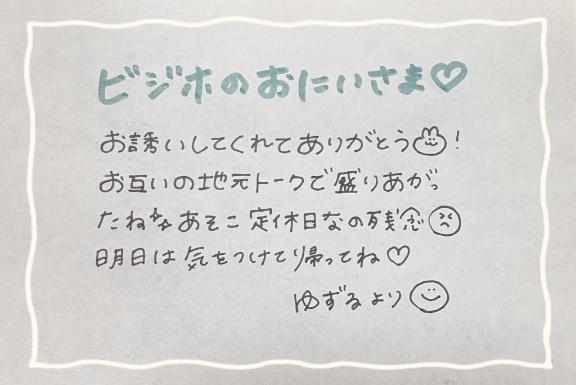 ビジホのおにいさま♡
お誘いしてくれてありがとう🐰!
お互いの地元トークで盛りあがっ
たね✨あそこ定休日なの残念☹
明日は気をつけてり帰ってね♡
ゆずるより☺